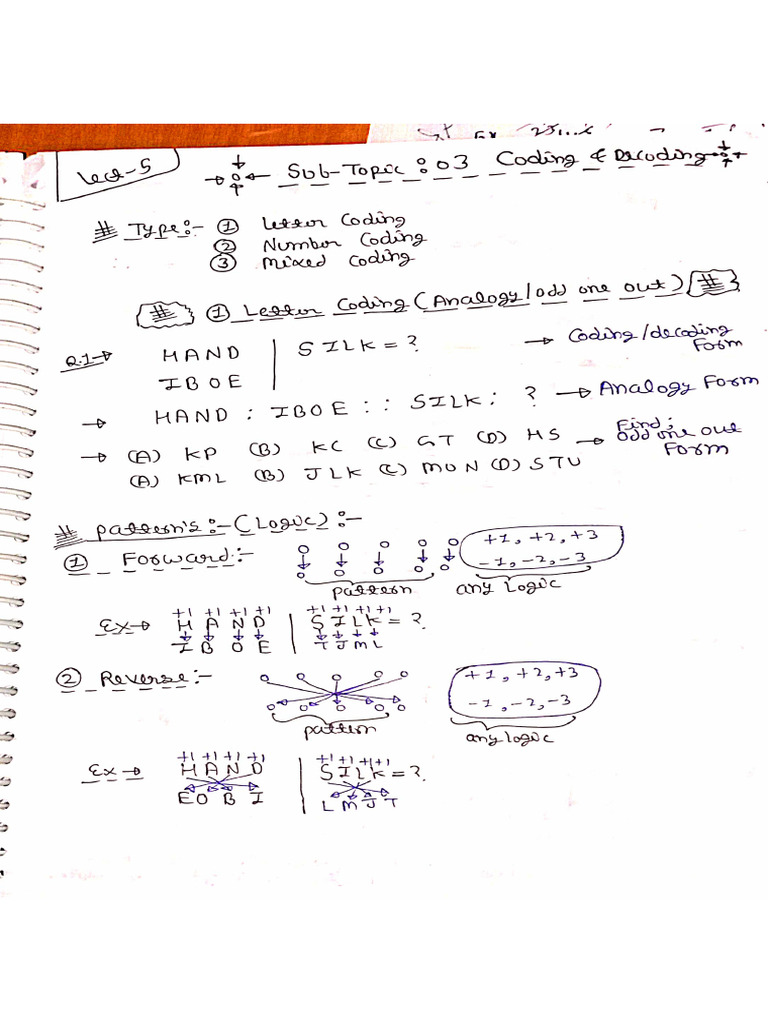 Lect-5
Sub-Topic : 03 Coding & Decoding
# Type:- ① Letter Coding
② Number Coding
③ Mixed Coding
# ① Letter Coding (Analogy/odd one out) #
Q.1→ HAND | SILK = ? → Coding/decoding Form
IBOE
→ HAND : IBOE : : SILK : ? → Analogy Form
→ (A) KP (B) KC (C) GT (D) HS → Find; odd one out Form
(A) KML (B) JLK (C) MON (D) STU
# Pattern's:- (Logic):-
① Forward:- +1, +2, +3
-1, -2, -3
pattern any Logic
+1 +1 +1 +1 | +1 +1 +1 +1
Ex→ H A N D | S I L K = ?
I B O E | T J M L
② Reverse:- +1, +2, +3
-1, -2, -3
pattern any logic
+1 +1 +1 +1 | +1 +1 +1 +1
Ex→ H A N D | S I L K = ?
E O B I | L M J T